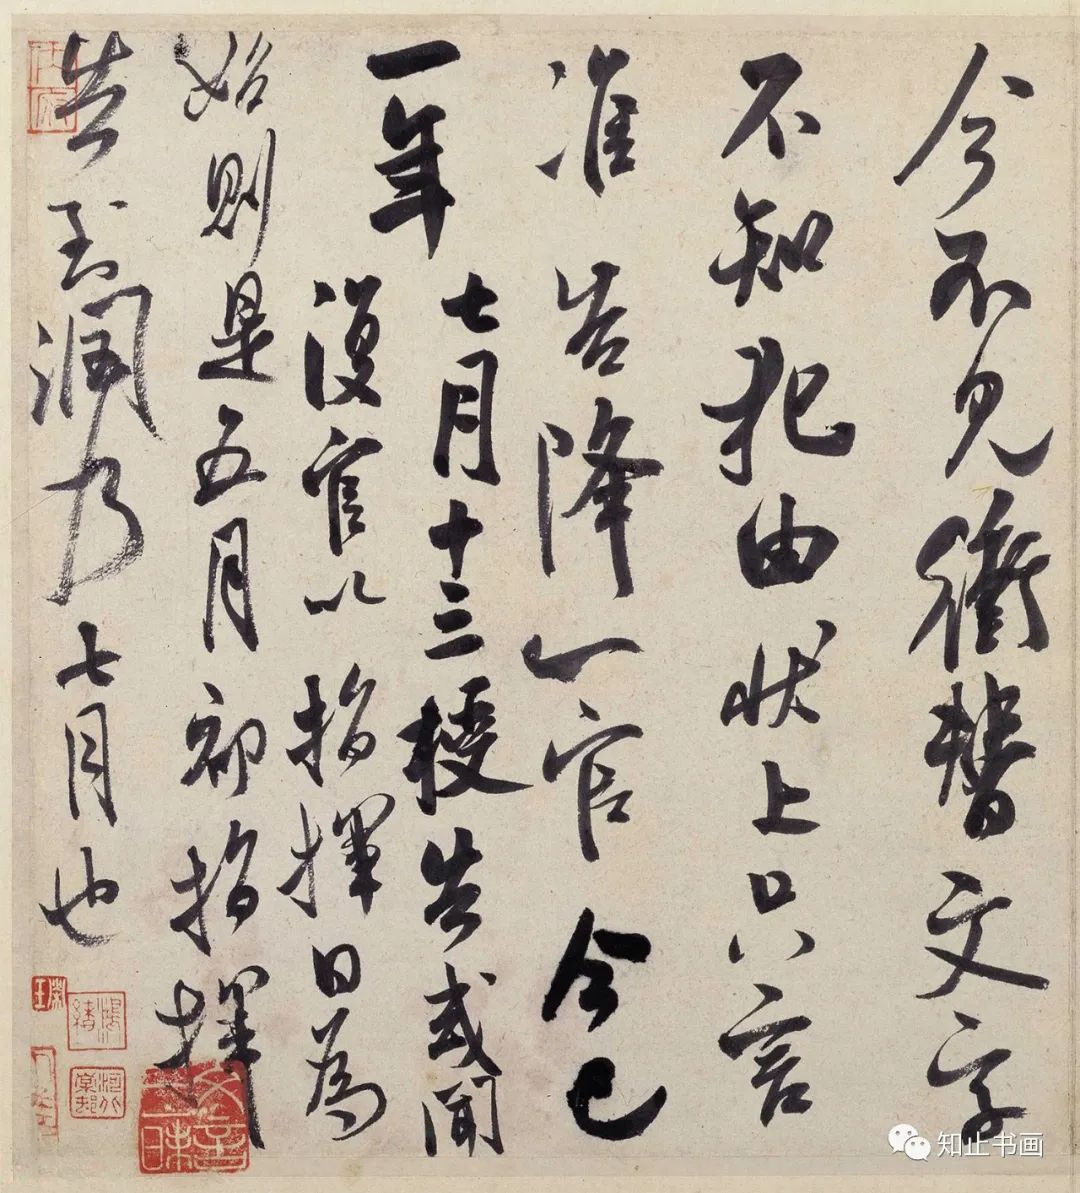 今不见衝替文字
不知犯由状上只言
准告降一官今已
一年七月十三授告或闻
復官以指揮日為
始则是五月初指揮
告至润乃七月也
知止书画